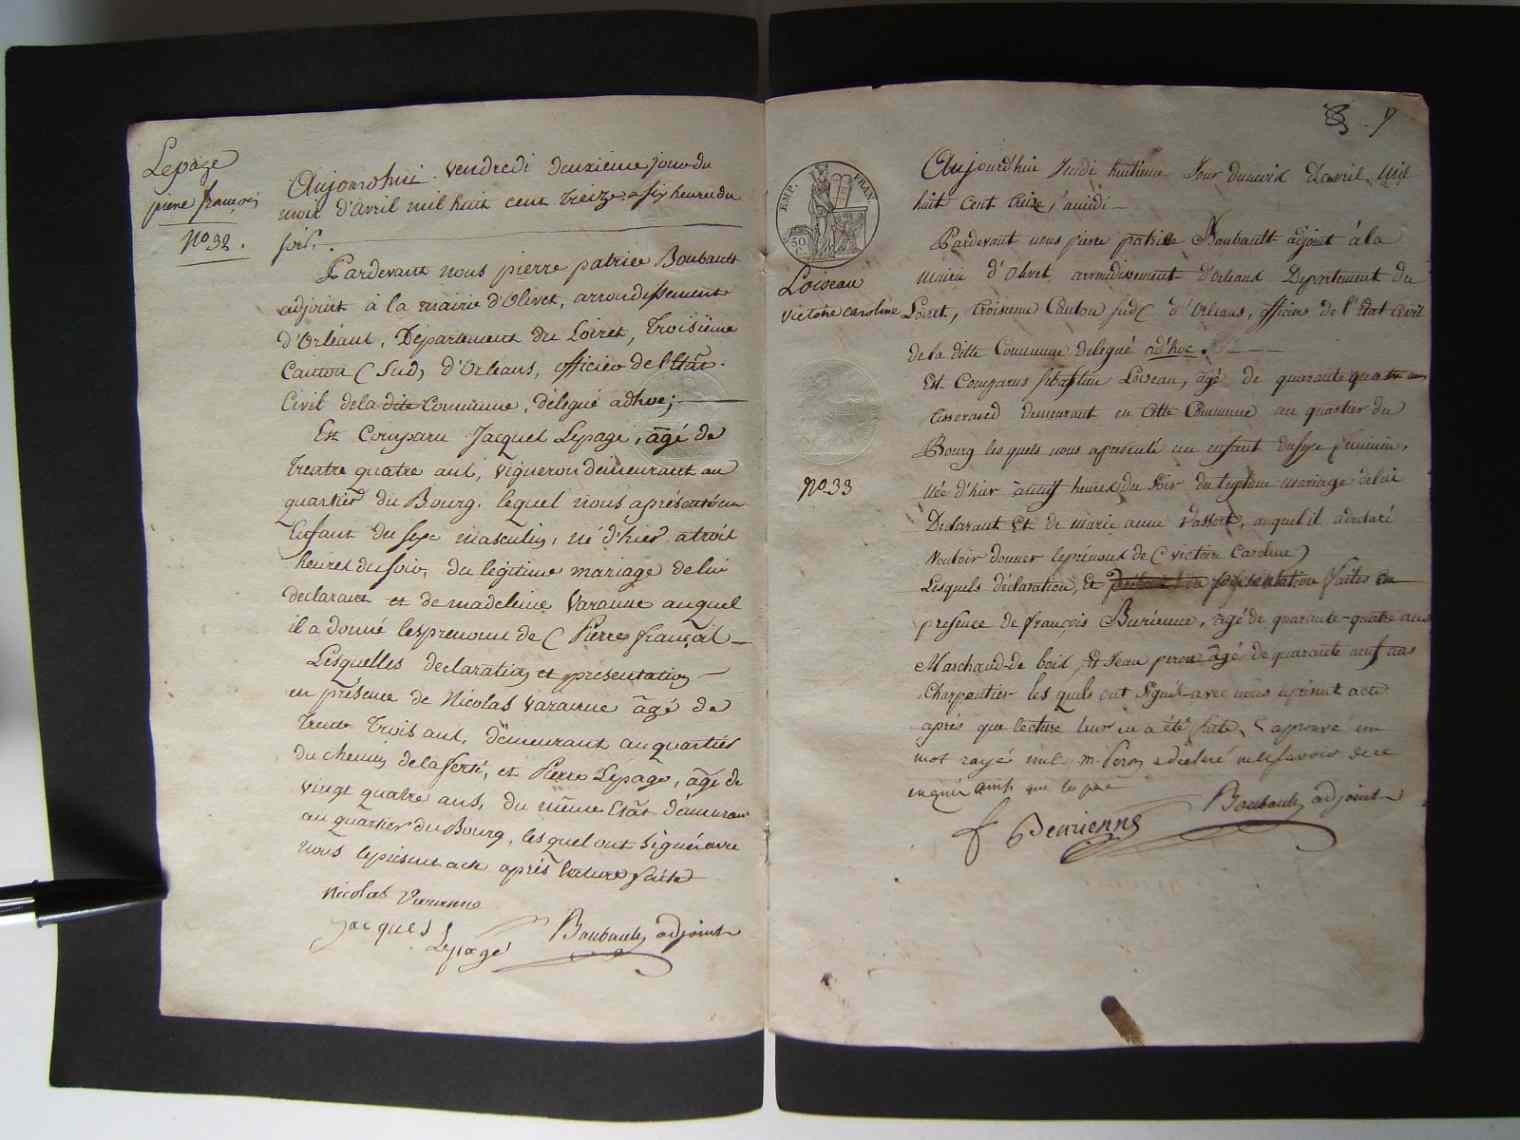 Lepage
pierre françois
N° 32.
Aujourdhui vendredi deuxieme jour du
mois d'Avril mil huit cent treize a six heures du
soir.
Pardevant nous pierre patrice Boubault
adjoint à la mairie d'Olivet, arrondissement
d'Orléans, Département du Loiret, Troisième
Canton (Sud) d'Orléans, officier de l'Etat
Civil de la dite Commune, délégué adhoc;
Est Comparu Jacques Lepage, âgé de
trente quatre ans, vigneron demeurant au
quartier du Bourg, lequel nous a présenté un
Enfant du sexe masculin, né d'hier a trois
heures du soir, du légitime mariage de lui
declarant et de madeleine Varenne auquel
il a donné les prenoms de (Pierre françois
Lesquelles declaration et presentation
en présence de Nicolas Varenne âgé de
trente trois ans, demeurant au quartier
du chemin de la ferté, et Pierre Lepage, âgé de
vingt quatre ans, du même Etat demeurant
au quartier du Bourg, lesquel ont signé avec
nous le présent acte après lecture faite
Nicolas Varenne
Jacques
Lepage
Boubault adjoint
9
EMP. FRAN
50
Loiseau
victoire caroline
N° 33
Aujourdhui Jeudi huitieme Jour du mois d'avril Mil
huit Cent treize, à midi
Pardevant nous pierre patrice Boubault adjoint à la
Mairie d'Olivet arrondissement d'Orleans Departement du
Loiret, troisieme Canton sud d'Orleans, officier de l'Etat Civil
de la ditte Commune delegué ad'hoc.
Est Comparus sébastien Loiseau, âgé de quarante quatre ans
tisserand demeurant en Cette Commune au quartier du
Bourg lesquels nous a presenté un enfant du sexe feminin,
née d'hier à neuf heures du soir du legitime mariage de lui
Declarant Et de marie anne Vassort, auquel il a declaré
Vouloir donner les prénoms de (victoire Caroline)
Lesquels déclaration, et presentation faites En
presence de françois Burienne, âgé de quarante-quatre ans
Marchand de bois, Et Jean peron âgé de quarante neuf ans
Charpentier les quels ont signés avec nous le présent acte
après que lecture leur en a été faite, approuvé un
mot rayé nul m. Peron a déclaré ne le savoir de ce
enquis ainsi que le père
f Beurienne
Boubault adjoint